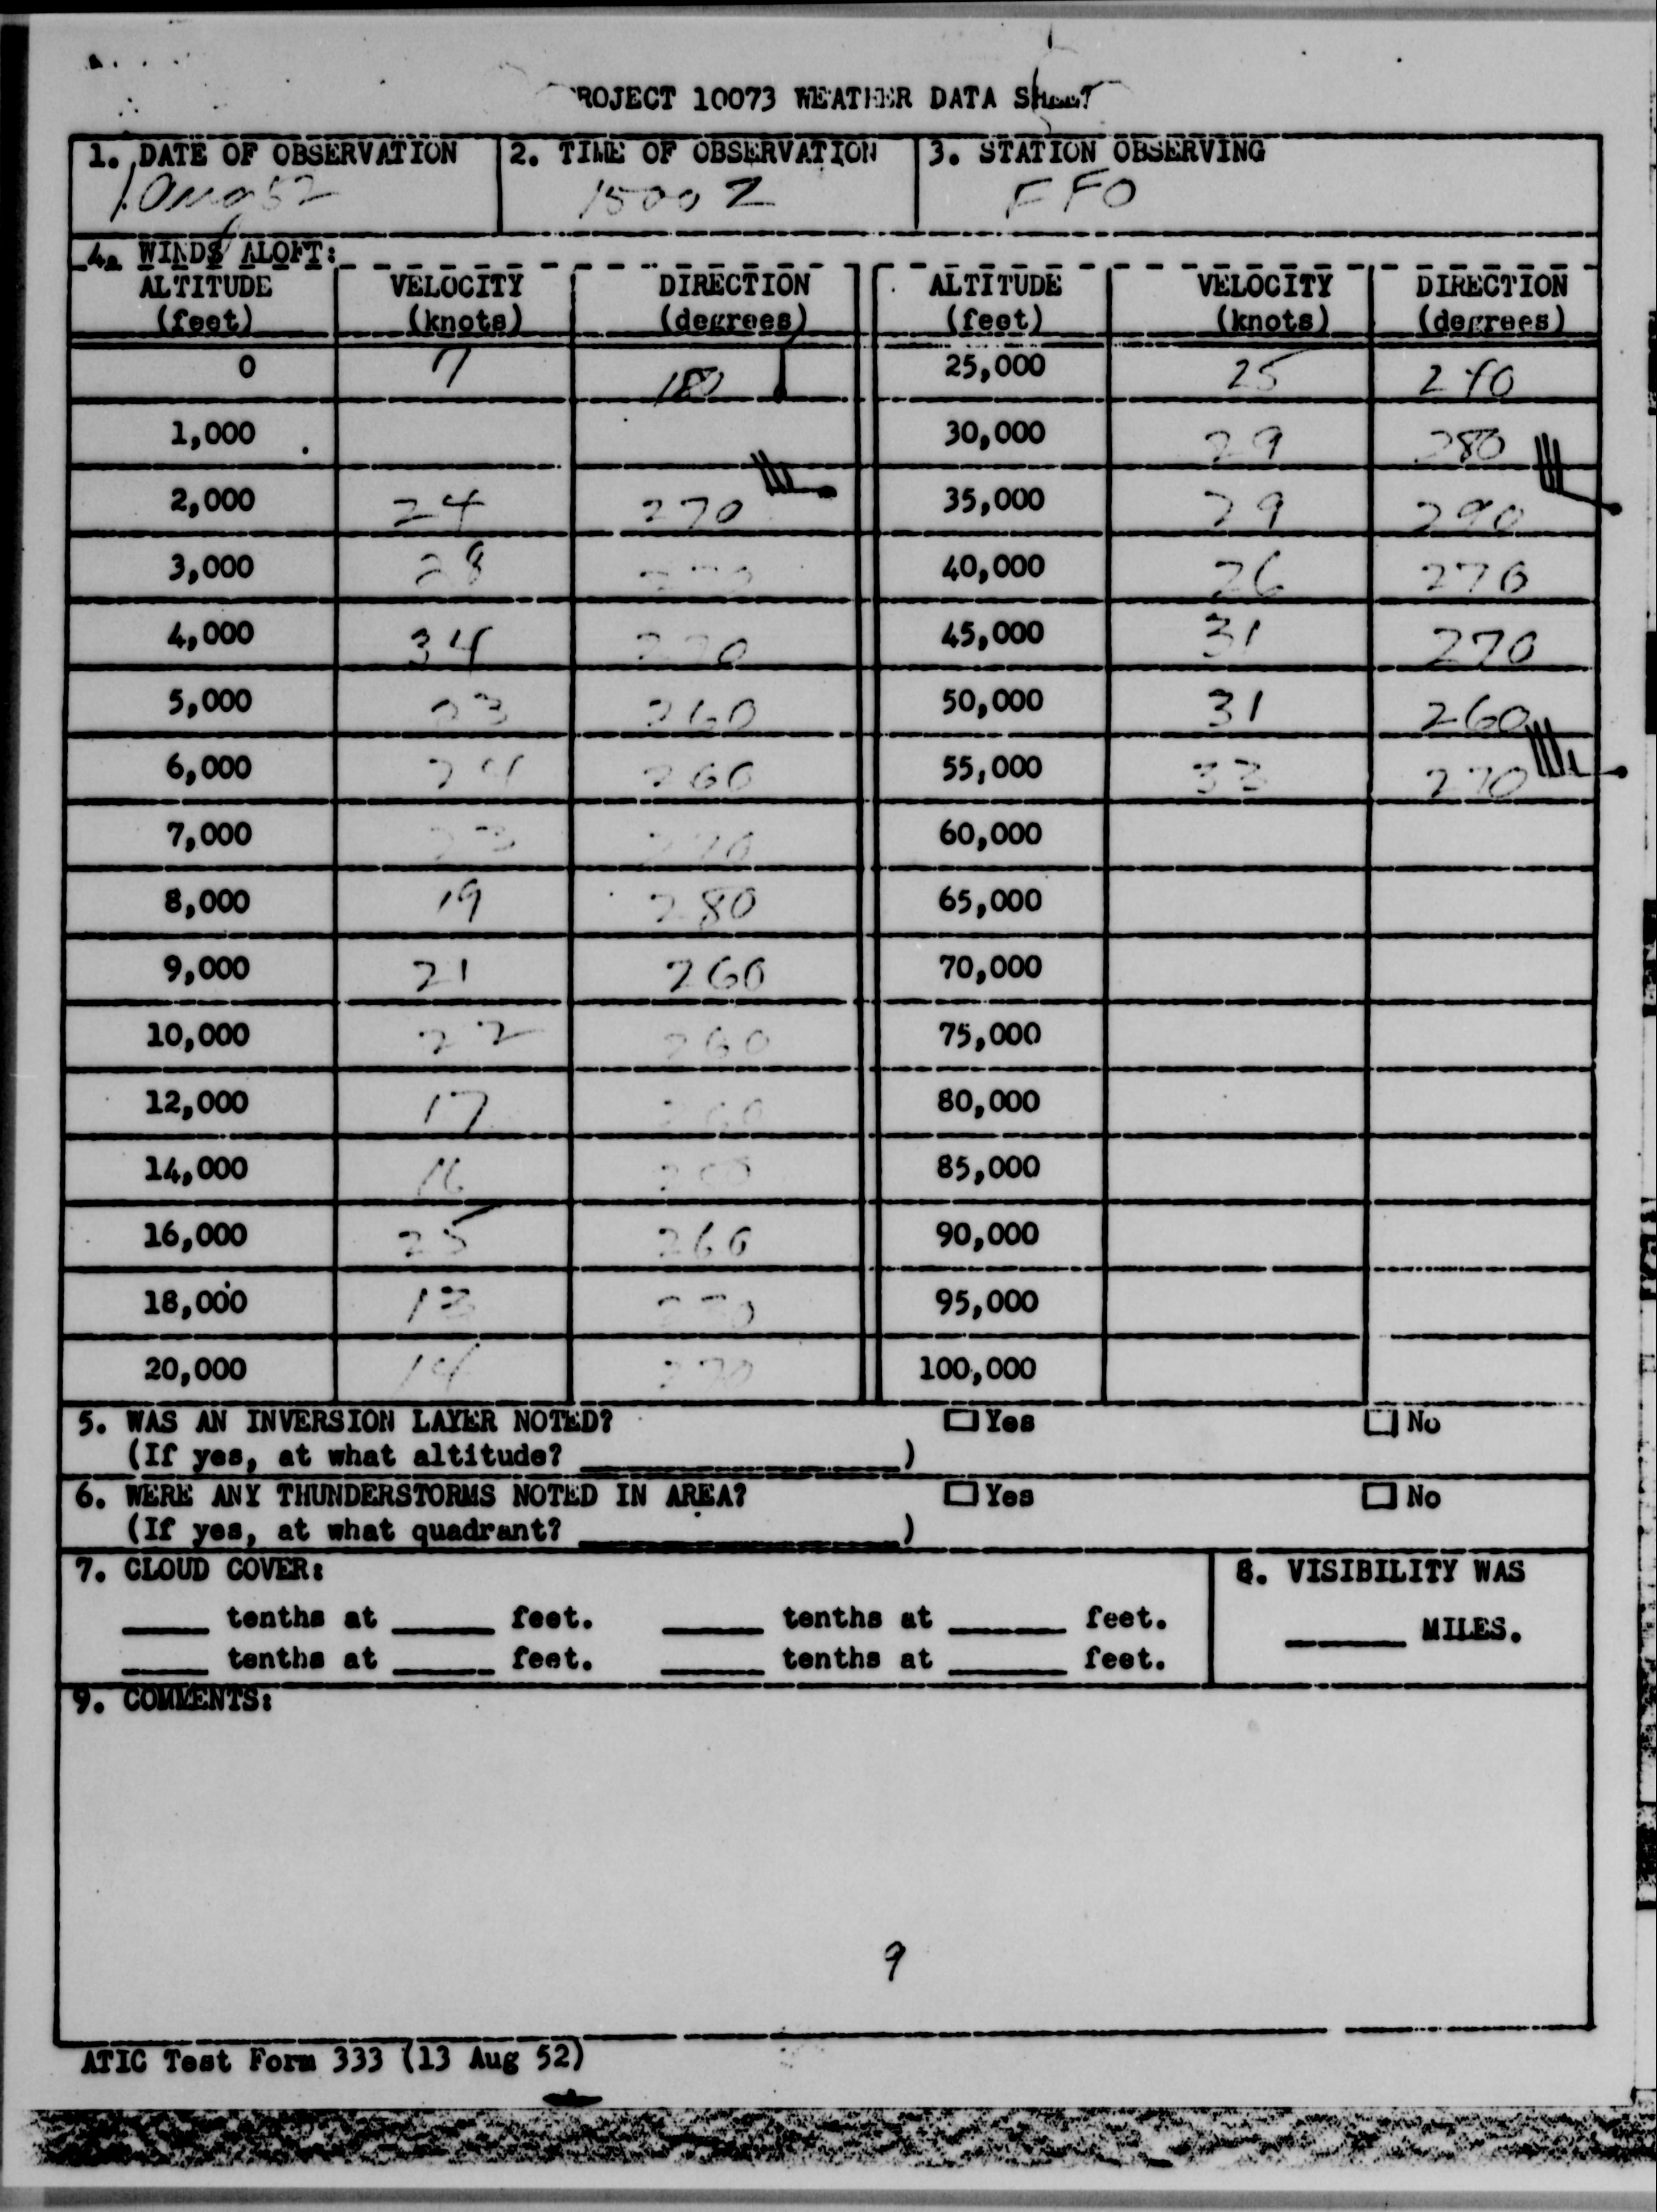 PROJECT 10073 WEATHER DATA SHEET
1. DATE OF OBSERVATION 2. TIME OF OBSERVATION 3. STATION OBSERVING
1 Aug 52 1500 Z FFO
4. WINDS ALOFT:
ALTITUDE VELOCITY DIRECTION ALTITUDE VELOCITY DIRECTION
(feet) (knots) (degrees) (feet) (knots) (degrees)
0 7 180 25,000 25
1,000 30,000 29 280
2,000 24 270 35,000 29 290
3,000 28 40,000 26 270
4,000 34 270 45,000 31 270
5,000 23 260 50,000 31 260
6,000 24 260 55,000 33 270
7,000 23 270 60,000
8,000 19 280 65,000
9,000 21 260 70,000
10,000 22 260 75,000
12,000 17 260 80,000
14,000 16 85,000
16,000 25 260 90,000
18,000 13 270 95,000
20,000 14 270 100,000
5. WAS AN INVERSION LAYER NOTED? Yes No
(If yes, at what altitude? )
6. WERE ANY THUNDERSTORMS NOTED IN AREA? Yes No
(If yes, at what quadrant? )
7. CLOUD COVER: 8. VISIBILITY WAS
tenths at feet. tenths at feet. MILES.
tenths at feet. tenths at feet.
9. COMMENTS:
9
ATIC Test Form 333 (13 Aug 52)